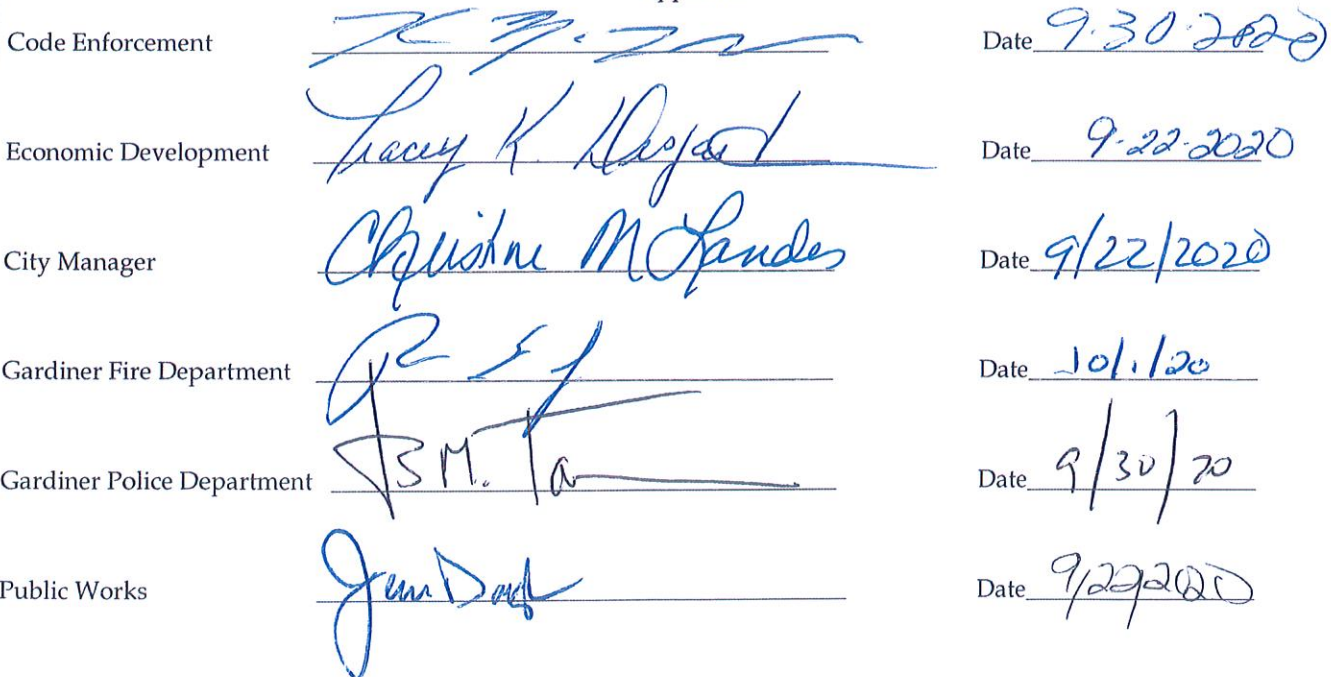 Code Enforcement Date 9.30.2020
Economic Development Tracey K. Desjardi Date 9-22-2020
City Manager Christine M Landes Date 9/22/2020
Gardiner Fire Department Date 10/1/20
Gardiner Police Department Date 9/30/20
Public Works Date 9/22/2020